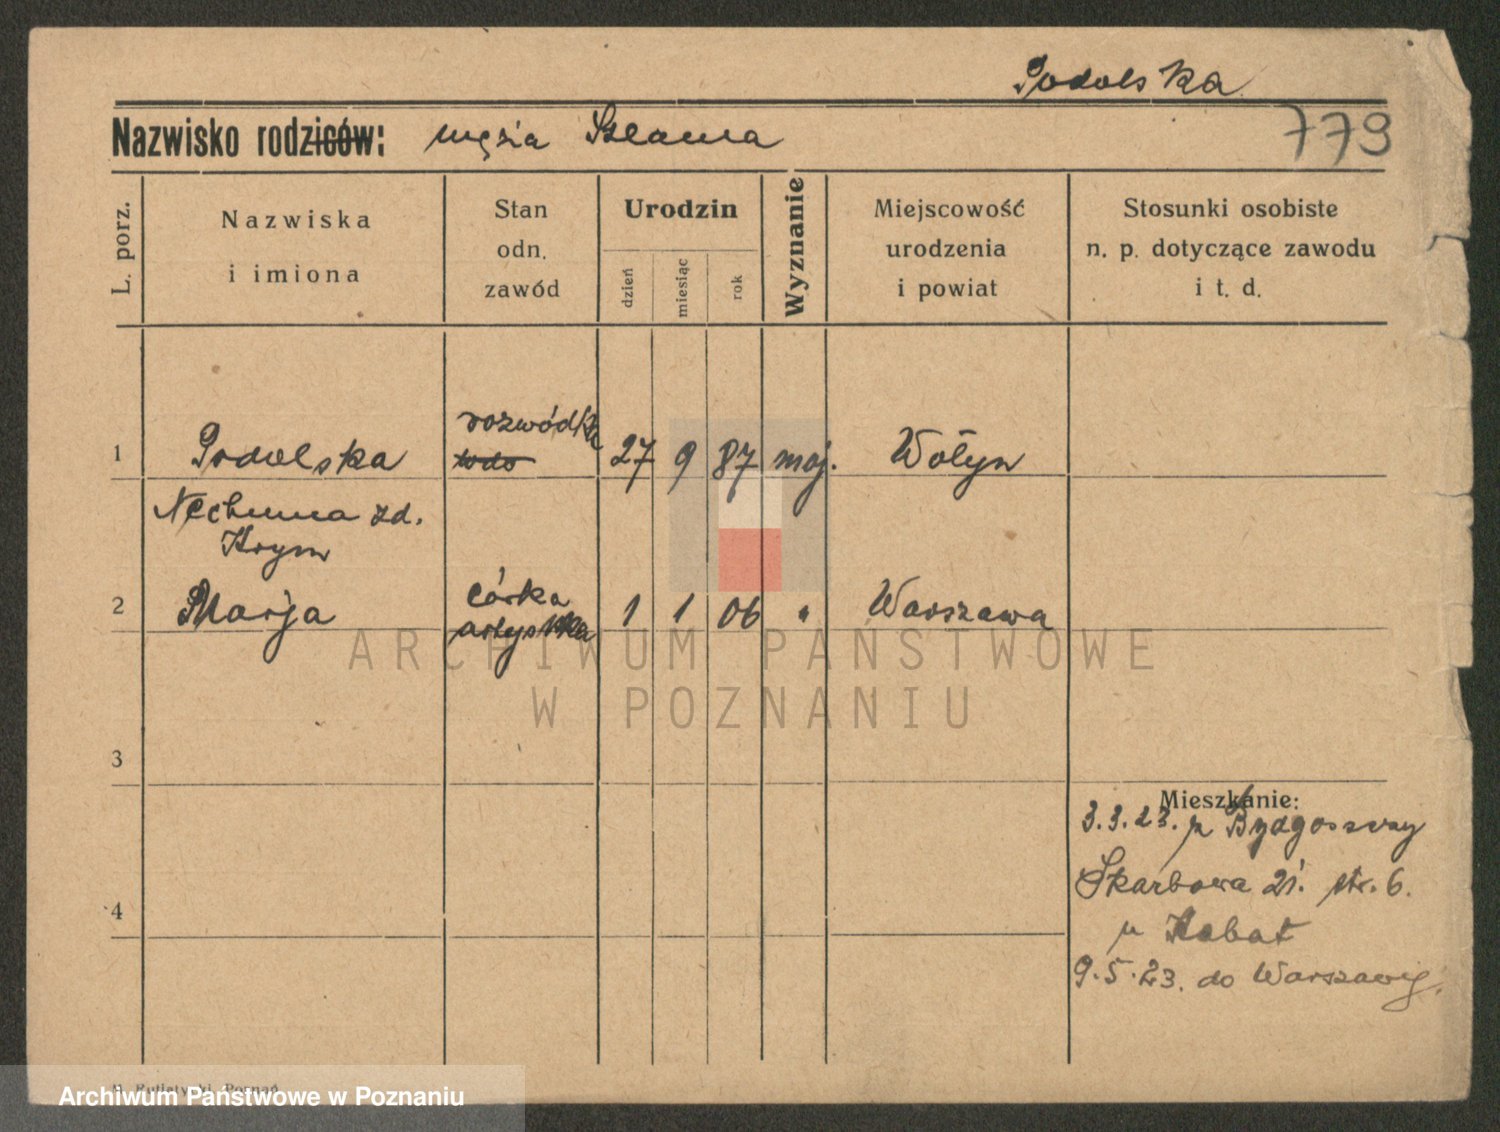 Podolska
Nazwisko rodziców: męża Szlama
779
L. porz.
Nazwiska
i imiona
Stan
odn.
zawód
Urodzin
dzień
miesiąc
rok
Wyznanie
Miejscowość
urodzenia
i powiat
Stosunki osobiste
n. p. dotyczące zawodu
i t. d.
rozwódka
1 Podolska wdo 27 9 87 moj. Wołyn
Nechuma zd.
Krym
córka
2 Marja artystka 1 1 06 " Warszawa
ARCHIWUM PAŃSTWOWE
W POZNANIU
3
Mieszkanie:
3.3.23. z Bydgoszczy
Skarbowa 21. str. 6.
4
u Kabat
9.5.23. do Warszawy.
Poznań
Archiwum Państwowe w Poznaniu